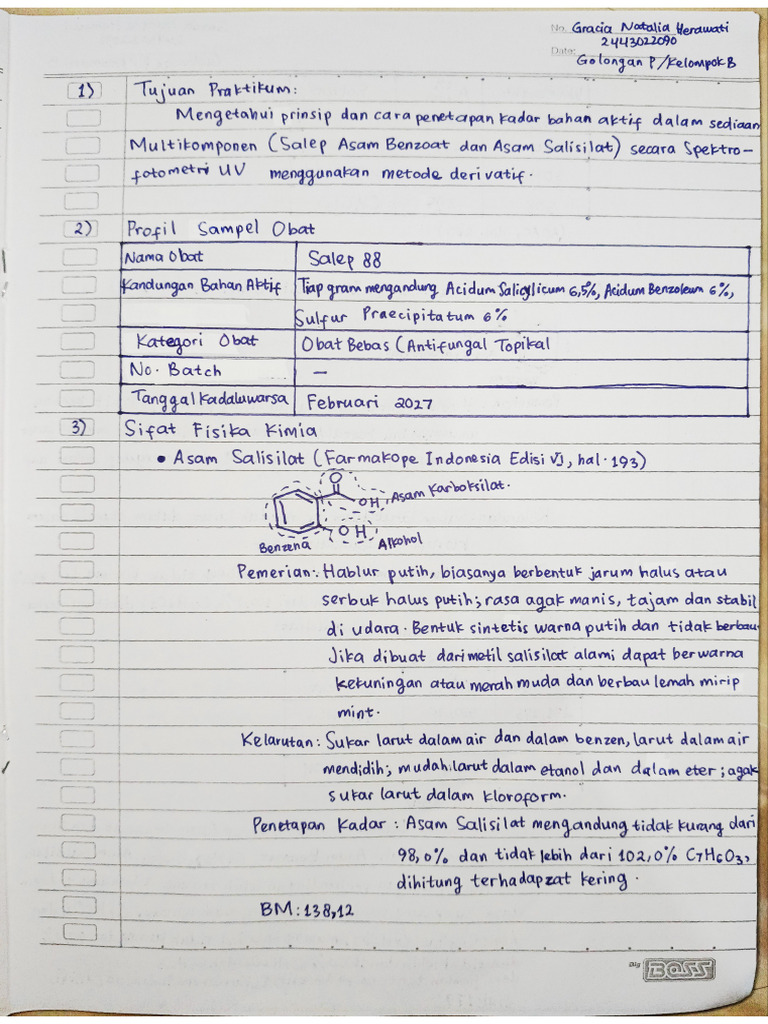 No. Gracia Natalia Herawati
2443022090
Date: Golongan P/Kelompok B
1) Tujuan Praktikum:
Mengetahui prinsip dan cara penetapan kadar bahan aktif dalam sediaan
Multikomponen (Salep Asam Benzoat dan Asam Salisilat) secara Spektro-
fotometri UV menggunakan metode derivatif.
2) Profil Sampel Obat
Nama Obat Salep 88
Kandungan Bahan Aktif Tiap gram mengandung Acidum Salicylicum 6,5%, Acidum Benzoicum 6%,
Sulfur Praecipitatum 6%
Kategori Obat Obat Bebas (Antifungal Topikal
No. Batch –
Tanggal Kadaluwarsa Februari 2027
3) Sifat Fisika Kimia
• Asam Salisilat (Farmakope Indonesia Edisi VI, hal. 193)
O
OH Asam Karboksilat.
OH
Benzena Alkohol
Pemerian: Hablur putih, biasanya berbentuk jarum halus atau
serbuk halus putih; rasa agak manis, tajam dan stabil
di udara. Bentuk sintetis warna putih dan tidak berbau.
Jika dibuat dari metil salisilat alami dapat berwarna
kekuningan atau merah muda dan berbau lemah mirip
mint.
Kelarutan: Sukar larut dalam air dan dalam benzen, larut dalam air
mendidih; mudah larut dalam etanol dan dalam eter; agak
sukar larut dalam kloroform.
Penetapan Kadar : Asam Salisilat mengandung tidak kurang dari
98,0% dan tidak lebih dari 102,0% C7H6O3,
dihitung terhadap zat kering.
BM: 138,12
Big BOSS